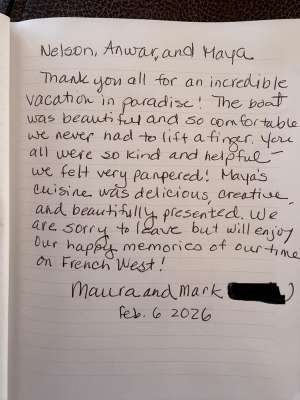 Nelson, Anwar, and Maya
Thank you all for an incredible
vacation in paradise! The boat
was beautiful and so comfortable
we never had to lift a finger. You
all were so kind and helpful –
we felt very pampered! Maya's
cuisine was delicious, creative,
and beautifully presented. We
are sorry to leave but will enjoy
our happy memories of our time
on French West!
Maura and Mark
Feb. 6 2026